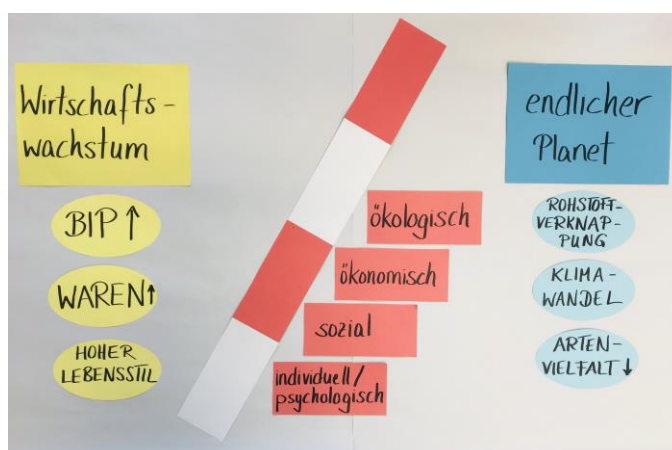 Wirtschafts-
wachstum
BIP ↑
WAREN↑
HOHER
LEBENSSTIL
ökologisch
ökonomisch
sozial
individuell/
psychologisch
endlicher
Planet
ROHSTOFF-
VERKNAP-
PUNG
KLIMA-
WANDEL
ARTEN-
VIELFALT↓